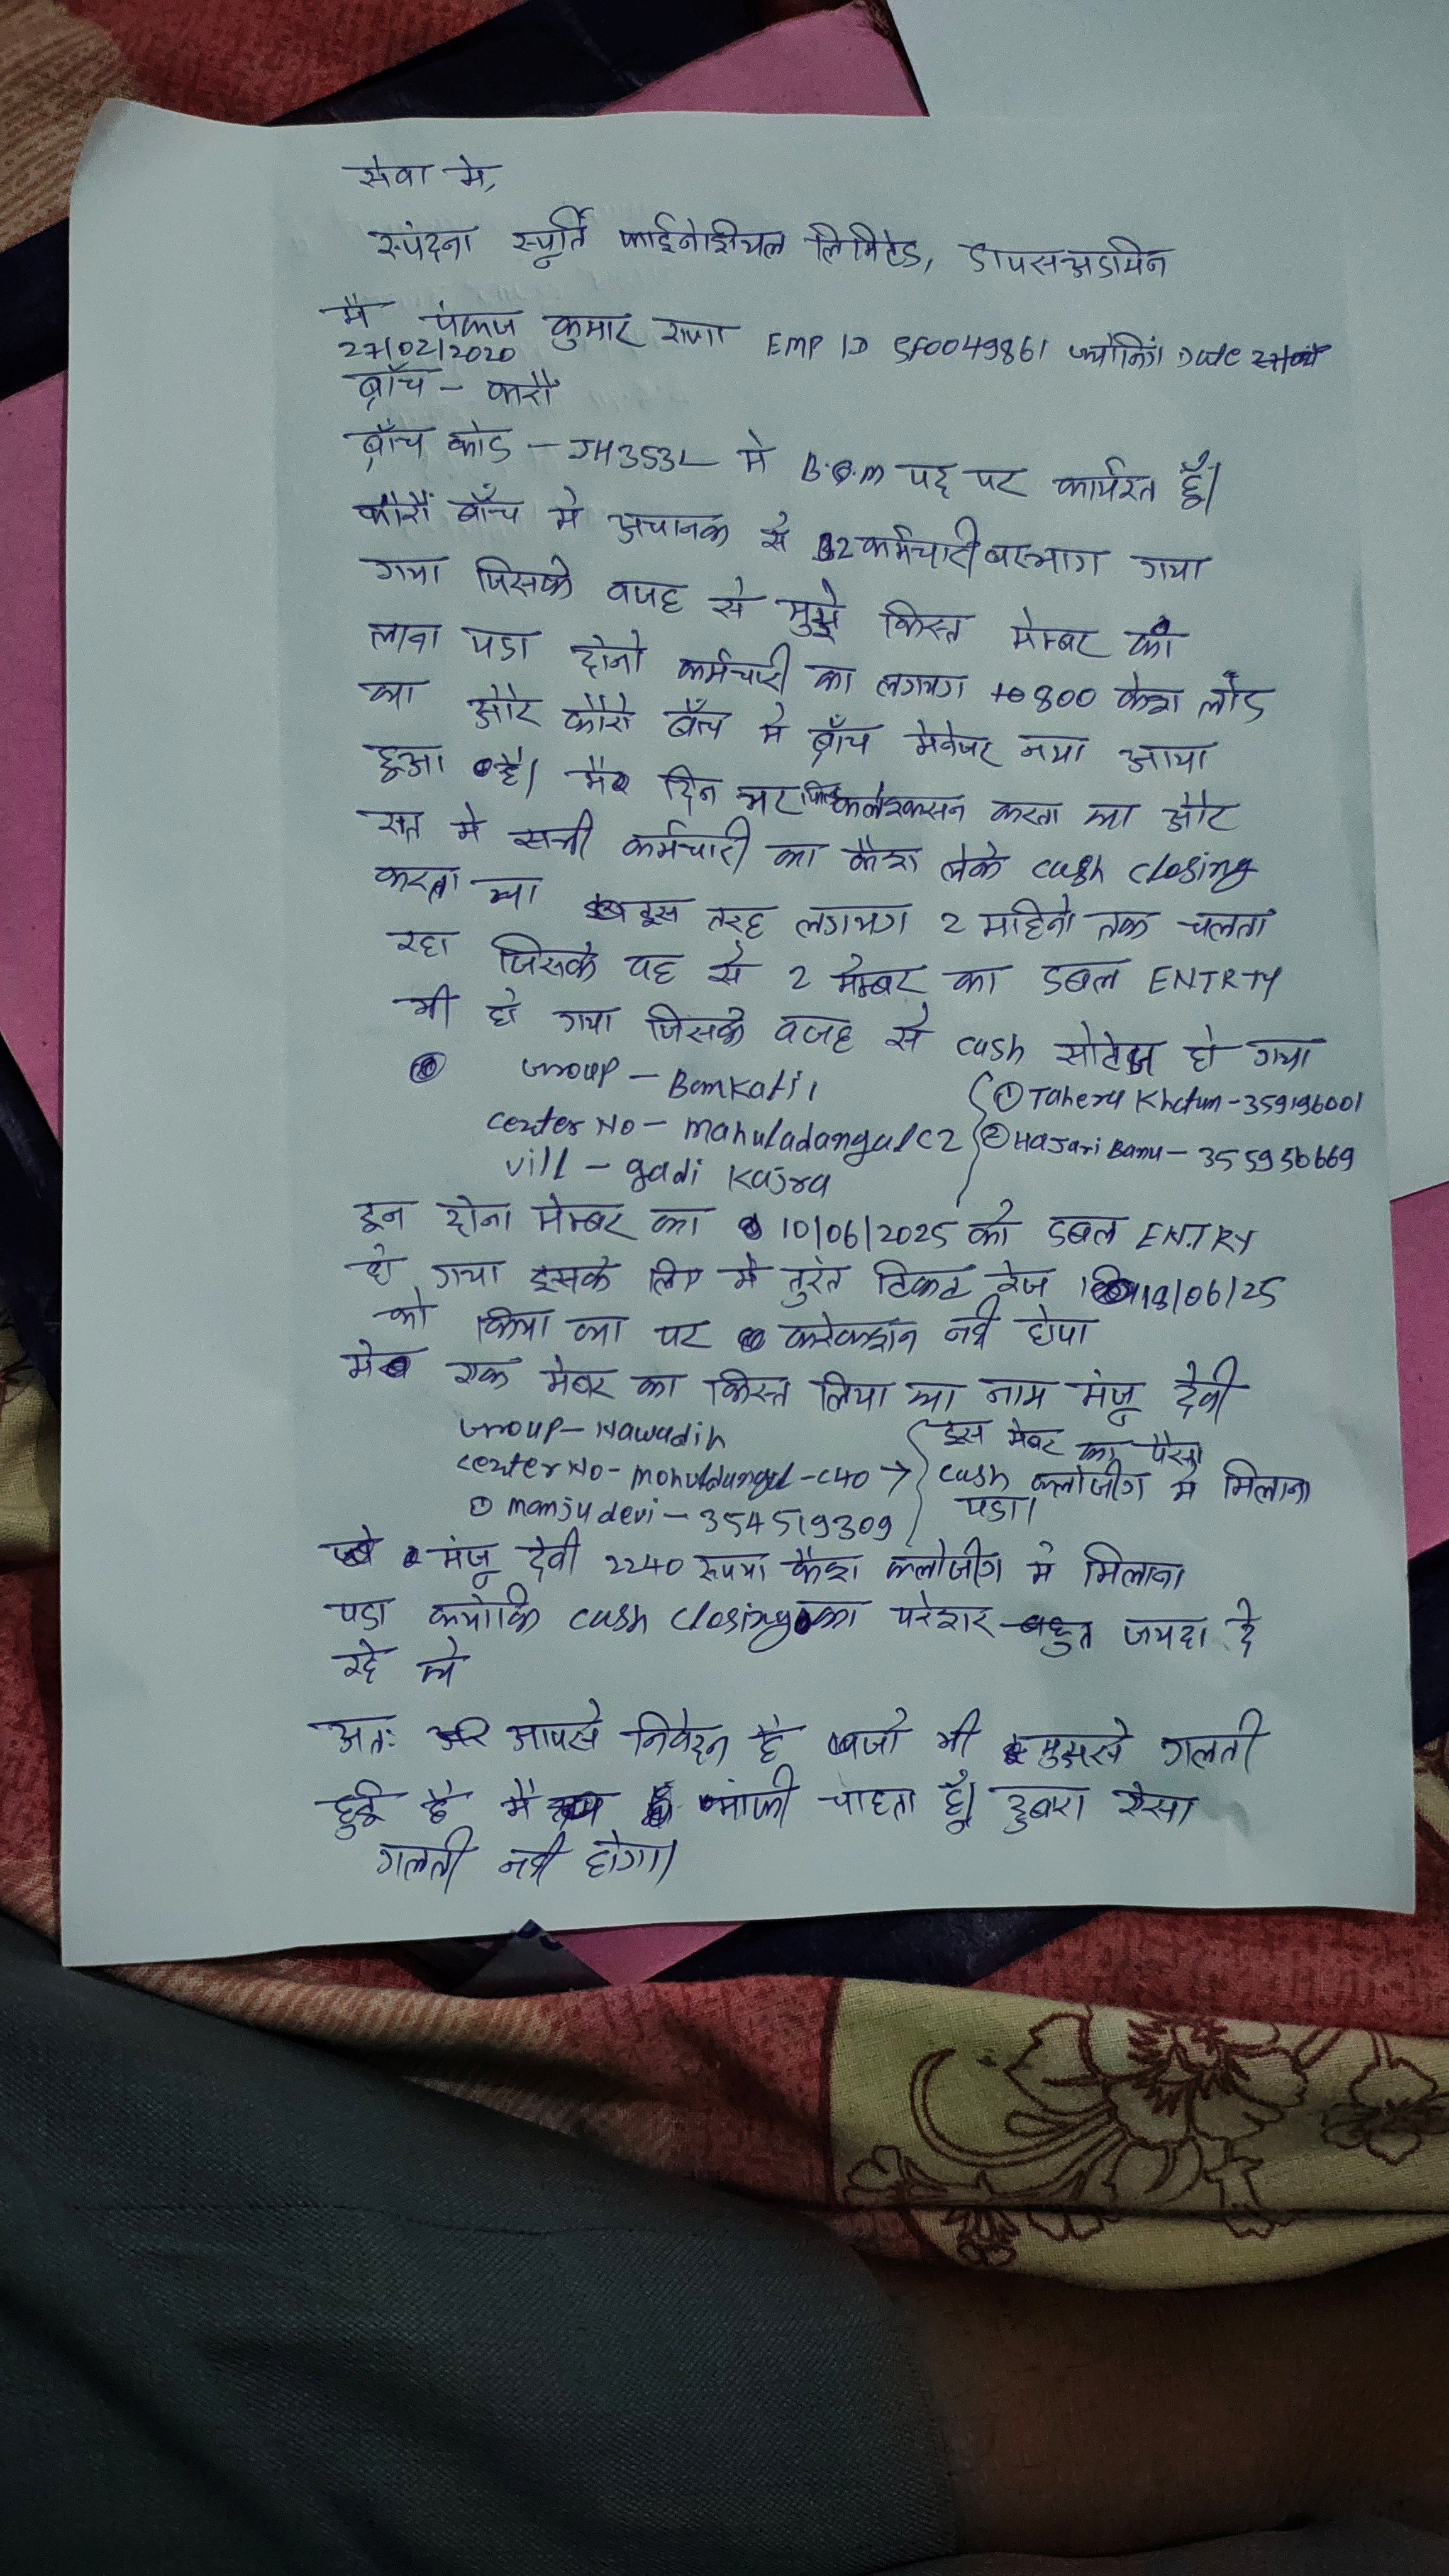 सेवा मे,
स्पंदना स्पूर्ति फाईनेंशियल लिमिटेड, डापसअडमिन
मै पंकज कुमार राणा EMP ID SF0049861 ज्योनिंग Date
27/02/2020
ब्राँच - करौं
ब्राँच कोड - JH353L मे B.Q.M पद पर कार्यरत हूँ।
करौं ब्राँच मे अचानक से 2 कर्मचारी भाग गया
गया जिसके वजह से मुझे किस्त मेम्बर का
लाना पडा दोनो कर्मचारी का लगभग 800 केश लोड
था और करौं ब्राँच मे ब्राँच मेनेजर नया आया
हुआ है। मै दिन भर कलेक्सन करता था और
रात मे सभी कर्मचारी का कैश लेके cash closing
करता था इस तरह लगभग 2 महिनो तक चलता
रहा जिसके वह से 2 मेम्बर का डबल ENTRTY
भी हो गया जिसके वजह से cash सोटेज हो गया
Group - Bamkati1
center No - mahuladangal C2
vill - gadi Kajra
① Tahera Khatun - 359196001
② Hajari Banu - 355956669
इन दोना मेम्बर का 10/06/2025 को डबल ENTRY
हो गया इसके लिए मे तुरंत टिकट रेज 18/06/25
को किया था पर करेक्शन नही होपा
मे एक मेंबर का किस्त लिया था नाम मंजू देवी
Group - Nawadih
center No - mohuldangal - C40 →
① manju devi - 354519309
इस मेंबर का पैसा
cash क्लोजीग मे मिलाना
पडा।
मंजू देवी 2240 रूपया कैश क्लोजीग मे मिलाना
पडा क्योकि cash closing का परेशर बहुत जयदा दे
रहे थे
अतः आपसे निवेदन है जो भी मुझसे गलती
हुई है मै मांफी चाहता हूँ। दुबारा ऐसा
गलती नही होगा।